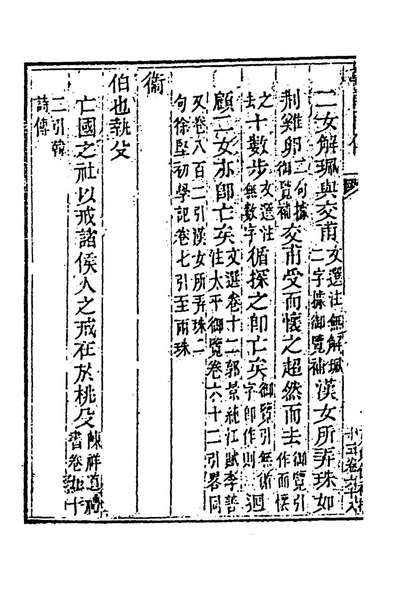 二女解珮與交甫文選注無解珮二字據御覽補漢女所弄珠如
荆雞卵二句據御覽補交甫受而懷之超然而去御覽引作而候
之去十數步文選注無數字循探之卽亡矣御覽引無循字卽作則迴
顧二女亦卽亡矣文選卷十二郭景純江賦李善注太平御覽卷六十二引畧同
又卷八百二引漢女所弄珠二句徐堅初學記卷七引至兩珠
衞
伯也執殳
亡國之社以戒諸侯人之戒在於桃殳陳祥道禮書卷
二引韓詩傳